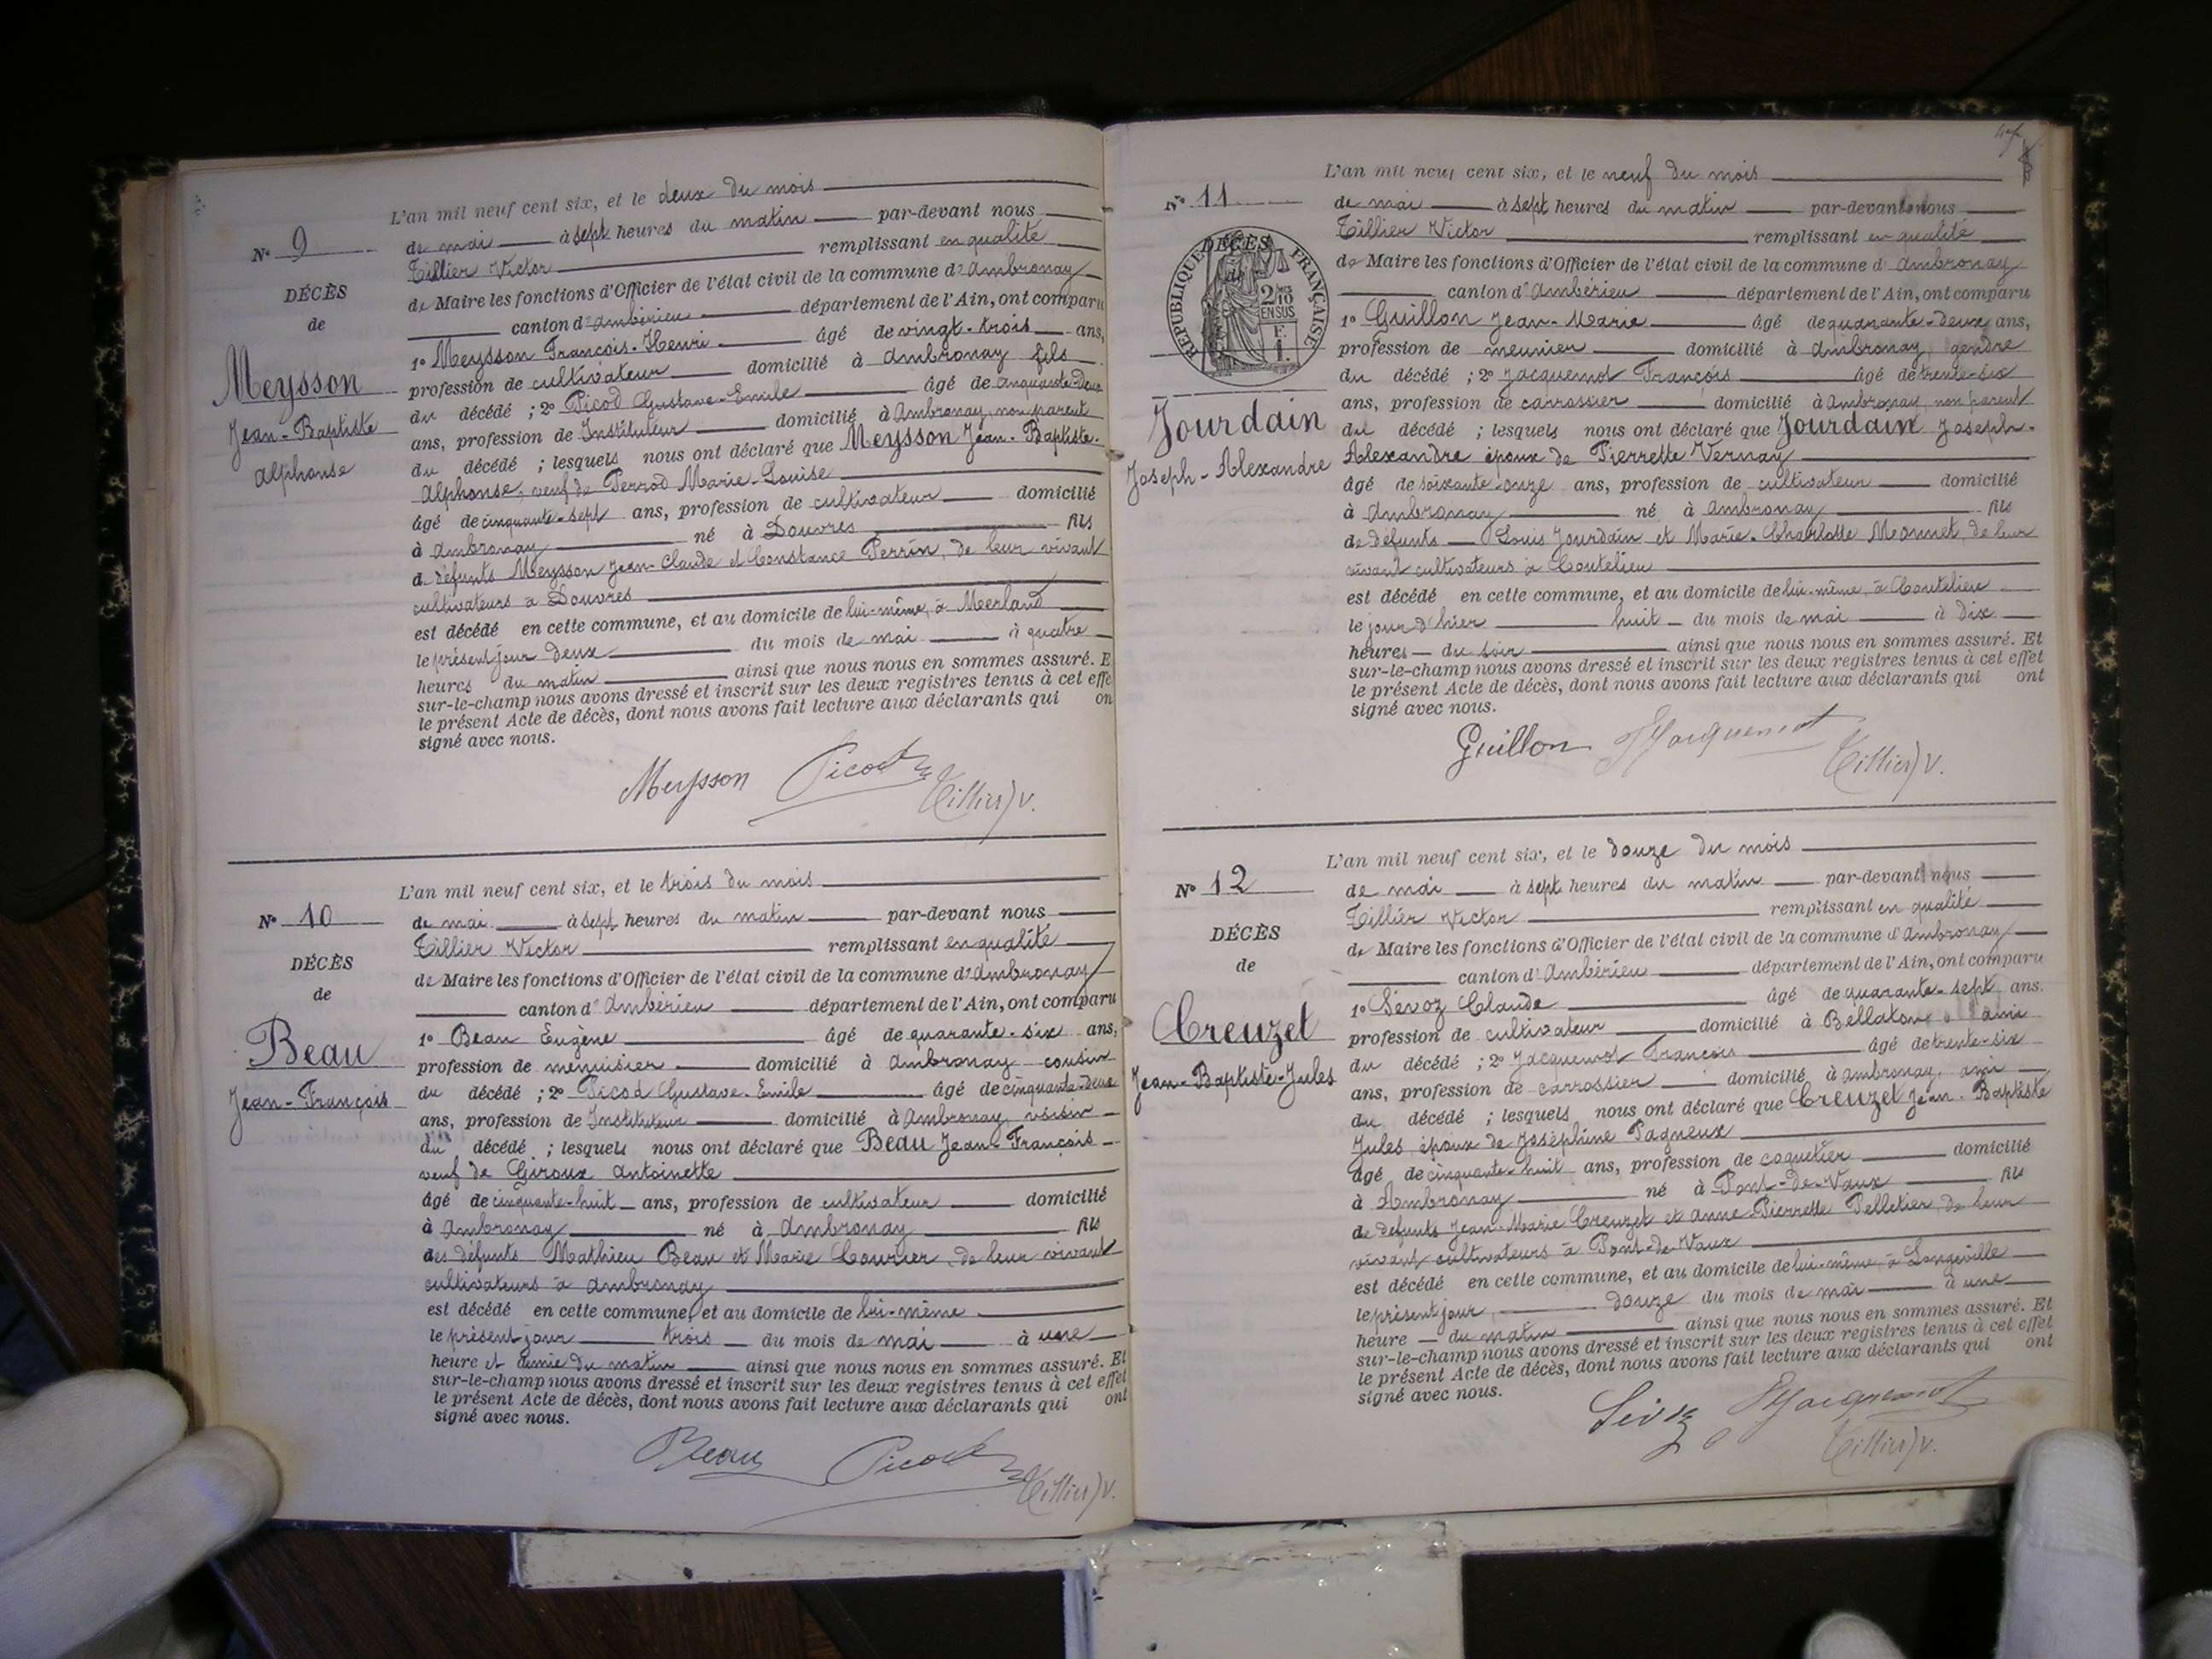 L'an mil neuf cent six, et le deux du mois
N° 9
de mai à sept heures du matin par-devant nous
Tillier Victor remplissant en qualité
DÉCÈS
de Maire les fonctions d'Officier de l'état civil de la commune d'Ambronay
de
canton d'Ambérieu département de l'Ain, ont comparu
1° Meysson François-Henri âgé de vingt-trois ans,
Meysson
profession de cultivateur domicilié à Ambronay fils
Jean-Baptiste
du décédé ; 2° Picod Gustave-Emile âgé de cinquante-deux
Alphonse
ans, profession de Instituteur domicilié à Ambronay, non parent
du décédé ; lesquels nous ont déclaré que Meysson Jean-Baptiste-
Alphonse, veuf de Perrod Marie-Louise
âgé de cinquante-sept ans, profession de cultivateur domicilié
à Ambronay né à Douvres fils
de défunts Meysson Jean-Claude et Constance Perrin, de leur vivant
cultivateurs à Douvres
est décédé en cette commune, et au domicile de lui-même, à Merland
le présent jour deux du mois de mai à quatre
heures du matin ainsi que nous nous en sommes assuré. E
sur-le-champ nous avons dressé et inscrit sur les deux registres tenus à cet effe
le présent Acte de décès, dont nous avons fait lecture aux déclarants qui on
signé avec nous.
Meysson Picod Tillier V.
L'an mil neuf cent six, et le trois du mois
N° 10
de mai à sept heures du matin par-devant nous
Tillier Victor remplissant en qualité
DÉCÈS
de Maire les fonctions d'Officier de l'état civil de la commune d'Ambronay
de
canton d'Ambérieu département de l'Ain, ont comparu
1° Beau Eugène âgé de quarante-six ans,
Beau
profession de menuisier domicilié à Ambronay cousin
Jean-François
du décédé ; 2° Picod Gustave-Emile âgé de cinquante-deux
ans, profession de Instituteur domicilié à Ambronay, voisin
du décédé ; lesquels nous ont déclaré que Beau Jean-François
veuf de Giroux Antoinette
âgé de cinquante-huit ans, profession de cultivateur domicilié
à Ambronay né à Ambronay fils
des défunts Mathieu Beau et Marie Courier, de leur vivant
cultivateurs à Ambronay
est décédé en cette commune, et au domicile de lui-même
le présent jour trois du mois de mai à une
heure et demie du matin ainsi que nous nous en sommes assuré. Et
sur-le-champ nous avons dressé et inscrit sur les deux registres tenus à cet effet
le présent Acte de décès, dont nous avons fait lecture aux déclarants qui ont
signé avec nous.
Beau Picod Tillier V.
L'an mil neuf cent six, et le neuf du mois
N° 11
de mai à sept heures du matin par-devant nous
Tillier Victor remplissant en qualité
RÉPUBLIQUE FRANÇAISE
DÉCÈS
de
2/10 EN SUS
F. 1.
de Maire les fonctions d'Officier de l'état civil de la commune d'Ambronay
canton d'Ambérieu département de l'Ain, ont comparu
1° Guillon Jean-Marie âgé de quarante-deux ans,
profession de meunier domicilié à Ambronay, gendre
du décédé ; 2° Jacquemot François âgé de trente-six
ans, profession de carrossier domicilié à Ambronay, non parent
Jourdain
du décédé ; lesquels nous ont déclaré que Jourdain Joseph-
Joseph-Alexandre
Alexandre époux de Pierrette Vernay
âgé de soixante-onze ans, profession de cultivateur domicilié
à Ambronay né à Ambronay fils
de défunts Louis Jourdain et Marie-Charlotte Monnet, de leur
vivant cultivateurs à Coutelieu
est décédé en cette commune, et au domicile de lui-même, à Coutelieu
le jour d'hier huit du mois de mai à dix
heures du soir ainsi que nous nous en sommes assuré. Et
sur-le-champ nous avons dressé et inscrit sur les deux registres tenus à cet effet
le présent Acte de décès, dont nous avons fait lecture aux déclarants qui ont
signé avec nous.
Guillon Jacquemot Tillier V.
L'an mil neuf cent six, et le douze du mois
N° 12
de mai à sept heures du matin par-devant nous
Tillier Victor remplissant en qualité
DÉCÈS
de Maire les fonctions d'Officier de l'état civil de la commune d'Ambronay
de
canton d'Ambérieu département de l'Ain, ont comparu
1° Sévoz Claude âgé de quarante-sept ans.
Creuzet
profession de cultivateur domicilié à Bellaton ami
Jean-Baptiste-Jules
du décédé ; 2° Jacquemot François âgé de trente-six
ans, profession de carrossier domicilié à Ambronay, ami
du décédé ; lesquels nous ont déclaré que Creuzet Jean-Baptiste
Jules époux de Joséphine Pagneux
âgé de cinquante-huit ans, profession de coquetier domicilié
à Ambronay né à Pont-de-Vaux fils
de défunts Jean-Marie Creuzet et Anne-Pierrette Pelletier, de leur
vivant cultivateurs à Pont-de-Vaux
est décédé en cette commune, et au domicile de lui-même, à Longeville
le présent jour, douze du mois de mai à une
heure du matin ainsi que nous nous en sommes assuré. Et
sur-le-champ nous avons dressé et inscrit sur les deux registres tenus à cet effet
le présent Acte de décès, dont nous avons fait lecture aux déclarants qui ont
signé avec nous.
Sévoz Jacquemot
Tillier V.